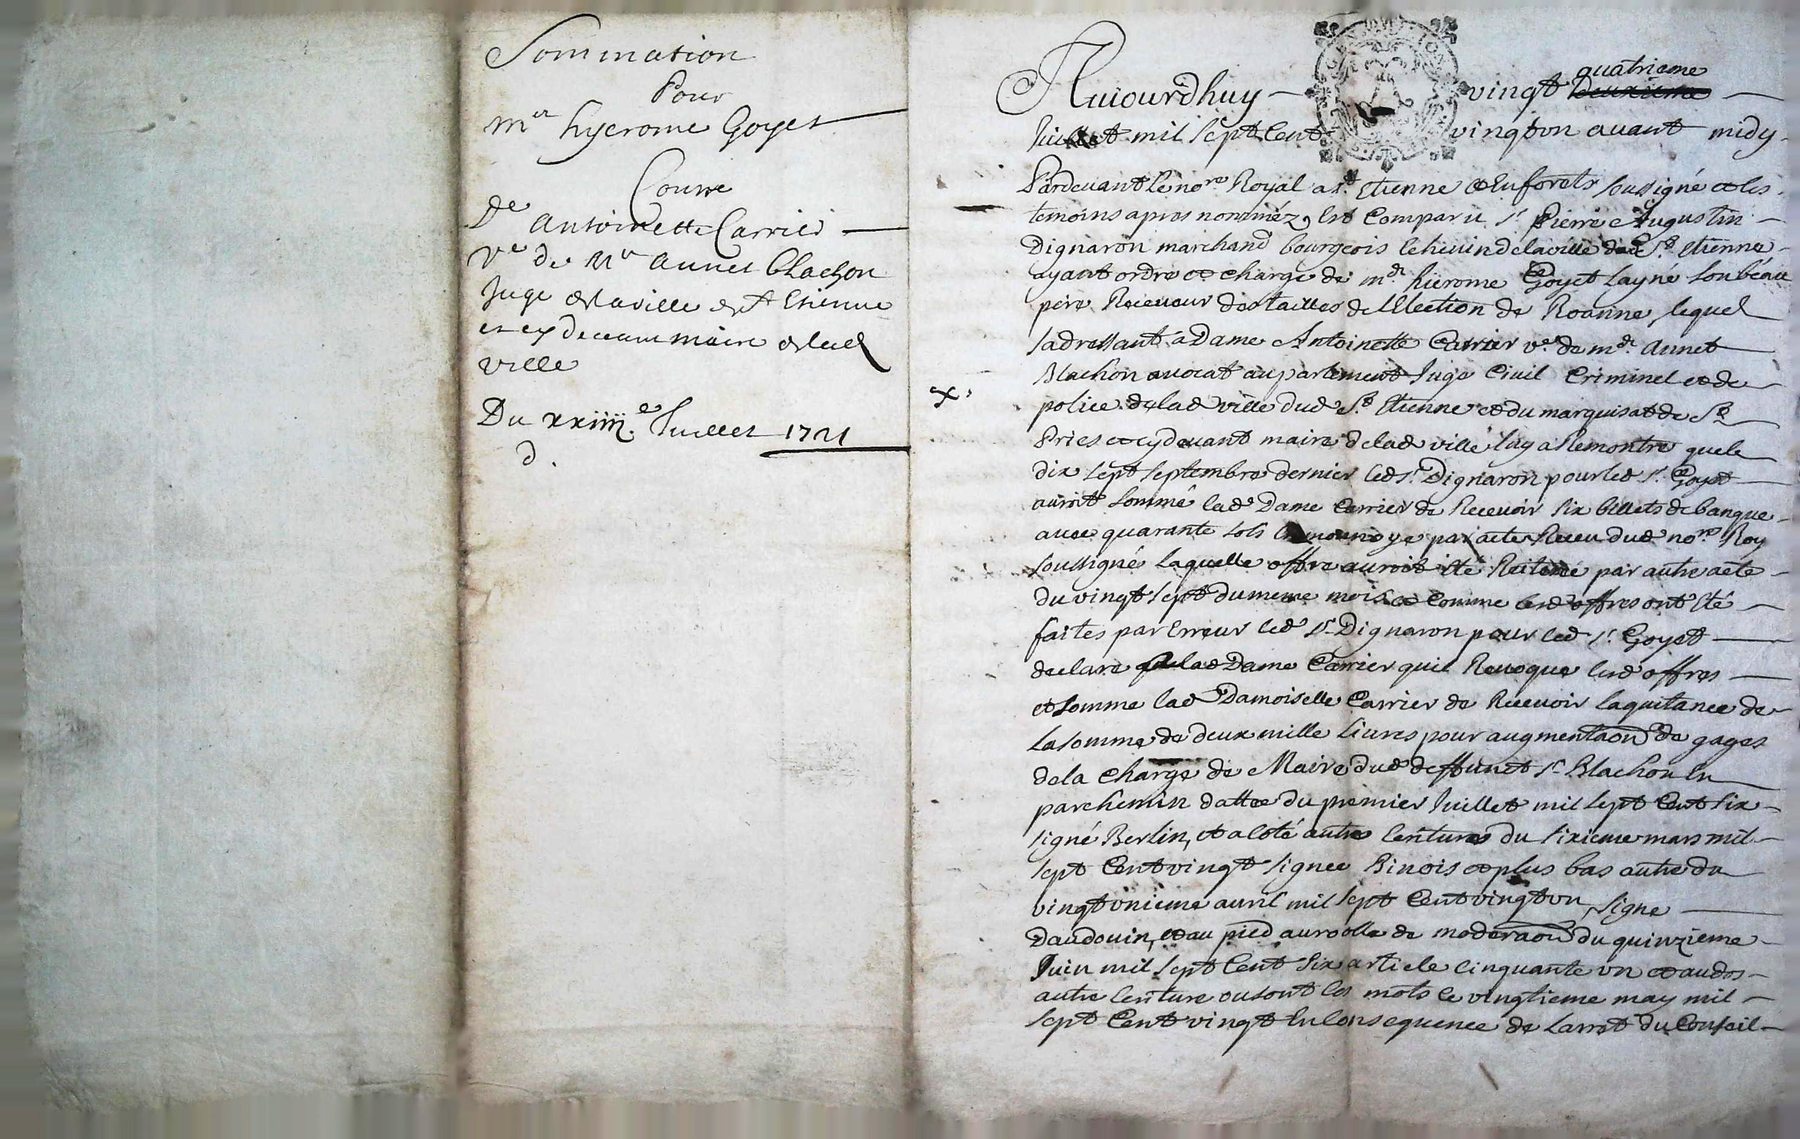 Sommation
Pour
Mre hyerome Goyet
Contre
De Antoinette Carrier
Ve de Mre Annet Blachon
Juge de laville de St Etienne
et cy devant maire de lad
ville
Du xxiiiie. Juillet 1721
d.
Aujourdhuy vingt quatrieme
Juillet mil sept cent vingt un avant midy
Pardevant le nore Royal a St. Etienne en forets soussigné et les
temoins apres nommez, Est Comparu Sr Pierre Augustin
Dignaron marchand bourgeois Echevin de laville de St. Etienne
ayant ordre et charge de mre hierome Goyet Layné son beau
pere Receveur des tailles de l'Election de Roanne, lequel
sadressant a Dame Antoinette Carrier ve. de mre. Annet
Blachon avocat au parlement Juge Civil Criminel et de
police de lad ville dud St. Etienne et du marquisat de St
Priest et cy devant maire de lad ville luy a Remontré que le
dix sept septembre dernier led Sr. Dignaron pour led Sr. Goyet
auroit sommé lad Dame Carrier de Recevoir six billets de banque
avec quarante sols monnoye par acte Receu dud nore Roy
soussigné laquelle offre auroit été Reiteré par autre acte
du vingt sept du meme mois et Comme lesd offres ont Eté
faites par Erreur led Sr Dignaron pour led Sr Goyet
declare a lad Dame Carrier quil Revoque lesd offres
et somme lad Damoiselle Carrier de Recevoir la quitance de
la somme de deux mille livres pour augmentaon de gages
de la charge de Maire dud deffunct Sr Blachon En
parchemin dattee du premier Juillet mil sept Cent six
signé Bertin, et a coté autre Centure du sixieme mars mil
sept Cent vingt signee Binois et plus bas autre du
vingt unieme avril mil sept Cent vingt un, signe
Daudouin, et au pied au rolle de moderaon du quinzieme
Juin mil sept Cent six article cinquante un et au dos
autre Centure ou sont les mots le vingtieme may mil
sept Cent vingt En Consequence de Larret du Conseil